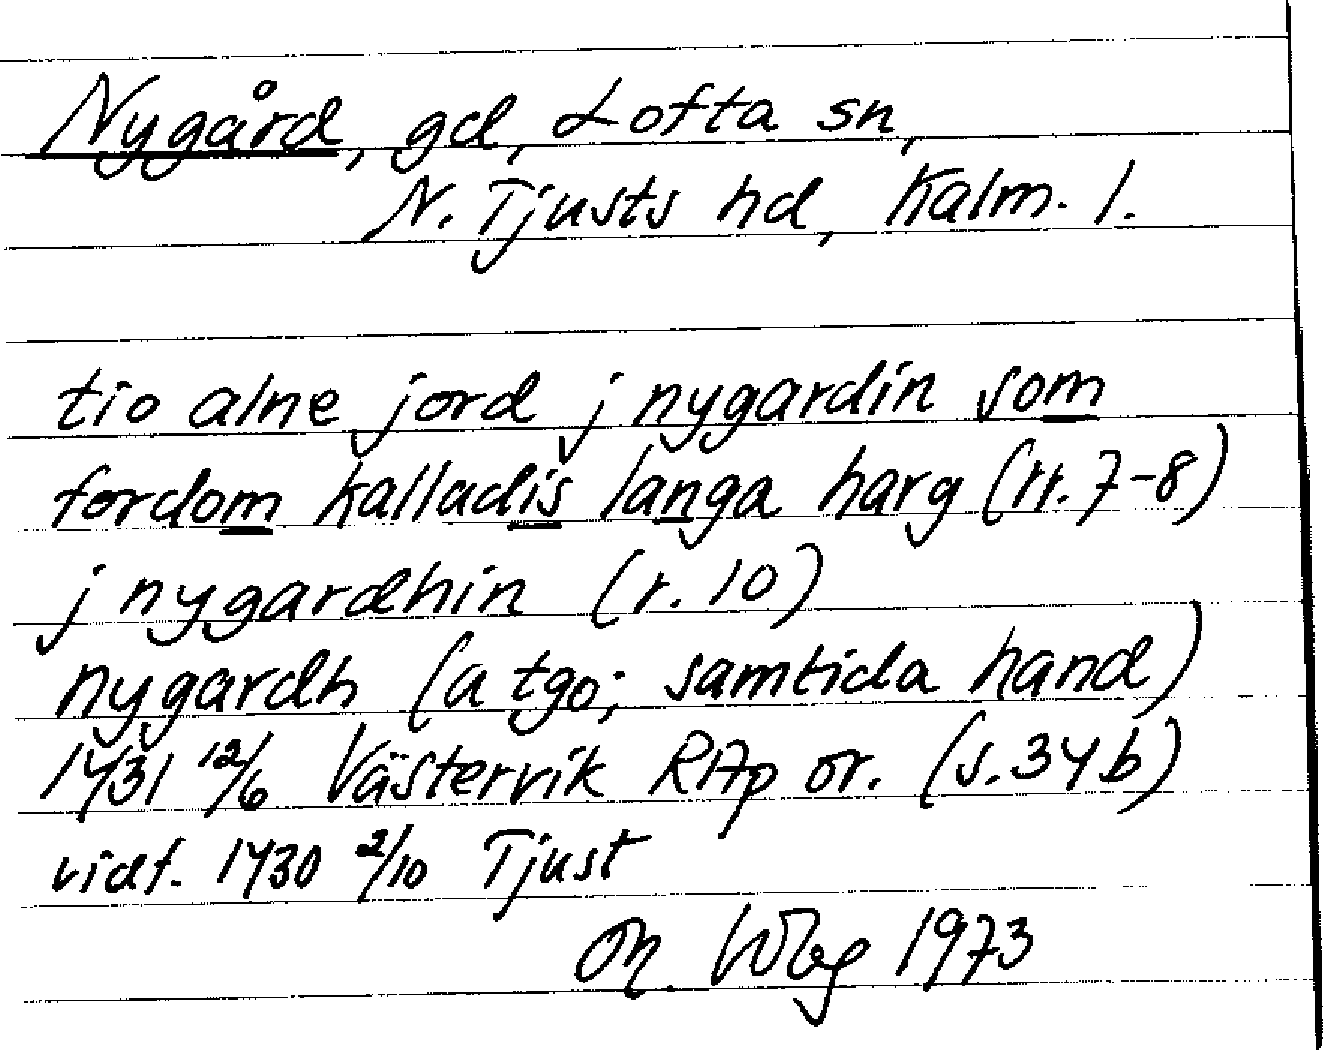 Nygård, gd, Lofta sn,
N. Tjusts hd, Kalm. l.
tio alne jord j nygardin som
fordom kalladis langa harg (rr. 7-8)
j nygardhin (r. 10)
nygardh (a tgo; samtida hand)
1431 12/6 Västervik RAp or. (s. 34 b)
vidf. 1430 2/10 Tjust
1973